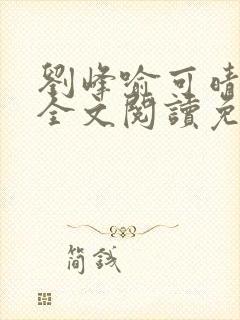 劉峰喻可晴
全文閱讀免
简钱